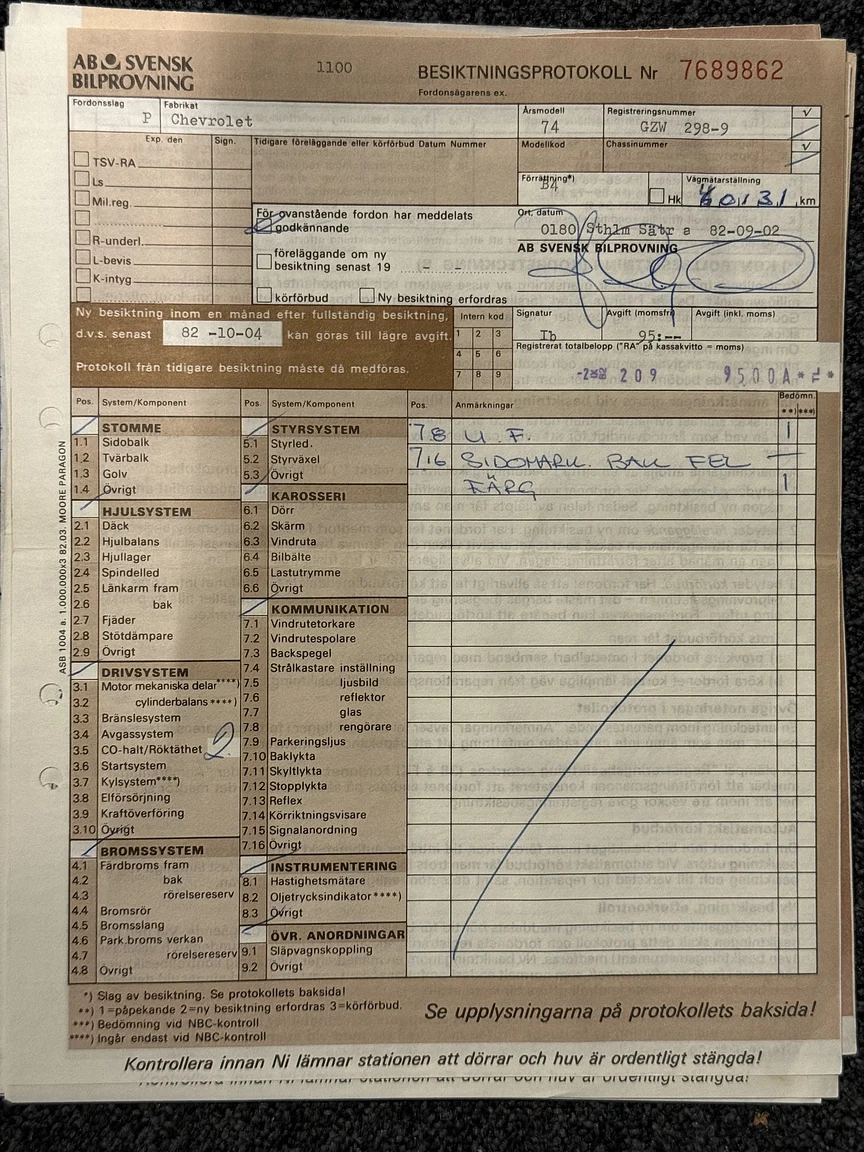 AB SVENSK
BILPROVNING
1100
BESIKTNINGSPROTOKOLL Nr 7689862
Fordonsägarens ex.
Fordonsslag Fabrikat Årsmodell Registreringsnummer
P Chevrolet 74 GZW 298-9
Exp. den Sign. Tidigare föreläggande eller körförbud Datum Nummer Modellkod Chassinummer
TSV-RA
Ls
Mil.reg.
R-underl.
L-bevis
K-intyg
Förrättning*) Vägmätarställning
B4 Hk km
För ovanstående fordon har meddelats
godkännande
föreläggande om ny
besiktning senast 19 - -
körförbud Ny besiktning erfordras
Ort, datum
0180 Sthlm Sätra 82-09-02
AB SVENSK BILPROVNING
Ny besiktning inom en månad efter fullständig besiktning,
d.v.s. senast 82 -10-04 kan göras till lägre avgift.
Protokoll från tidigare besiktning måste då medföras.
Intern kod
1 2 3
4 5 6
7 8 9
Signatur Avgift (momsfri) Avgift (inkl. moms)
Ib 95:--
Registrerat totalbelopp ("RA" på kassakvitto = moms)
209 9500A*
Pos. System/Komponent Pos. System/Komponent Pos. Anmärkningar Bedömn.
**) ***)
STOMME
1.1 Sidobalk
1.2 Tvärbalk
1.3 Golv
1.4 Övrigt
HJULSYSTEM
2.1 Däck
2.2 Hjulbalans
2.3 Hjullager
2.4 Spindelled
2.5 Länkarm fram
2.6 bak
2.7 Fjäder
2.8 Stötdämpare
2.9 Övrigt
DRIVSYSTEM
3.1 Motor mekaniska delar****)
3.2 cylinderbalans****)
3.3 Bränslesystem
3.4 Avgassystem
3.5 CO-halt/Röktäthet 2
3.6 Startsystem
3.7 Kylsystem****)
3.8 Elförsörjning
3.9 Kraftöverföring
3.10 Övrigt
BROMSSYSTEM
4.1 Färdbroms fram
4.2 bak
4.3 rörelsereserv
4.4 Bromsrör
4.5 Bromsslang
4.6 Park.broms verkan
4.7 rörelsereserv
4.8 Övrigt
STYRSYSTEM
5.1 Styrled.
5.2 Styrväxel
5.3 Övrigt
KAROSSERI
6.1 Dörr
6.2 Skärm
6.3 Vindruta
6.4 Bilbälte
6.5 Lastutrymme
6.6 Övrigt
KOMMUNIKATION
7.1 Vindrutetorkare
7.2 Vindrutespolare
7.3 Backspegel
7.4 Strålkastare inställning
7.5 ljusbild
7.6 reflektor
7.7 glas
7.8 rengörare
7.9 Parkeringsljus
7.10 Baklykta
7.11 Skyltlykta
7.12 Stopplykta
7.13 Reflex
7.14 Körriktningsvisare
7.15 Signalanordning
7.16 Övrigt
INSTRUMENTERING
8.1 Hastighetsmätare
8.2 Oljetrycksindikator****)
8.3 Övrigt
ÖVR. ANORDNINGAR
9.1 Släpvagnskoppling
9.2 Övrigt
7.8 U.F. 1
7.16 SIDOMARK. BAK FEL —
FÄRG 1
ASB 1004 a. 1.000.000x3 82.03. MOORE PARAGON
*) Slag av besiktning. Se protokollets baksida!
**) 1=påpekande 2=ny besiktning erfordras 3=körförbud.
***) Bedömning vid NBC-kontroll
****) Ingår endast vid NBC-kontroll
Se upplysningarna på protokollets baksida!
Kontrollera innan Ni lämnar stationen att dörrar och huv är ordentligt stängda!
Kontrollera innan Ni lämnar stationen att dörrar och huv är ordentligt stängda!